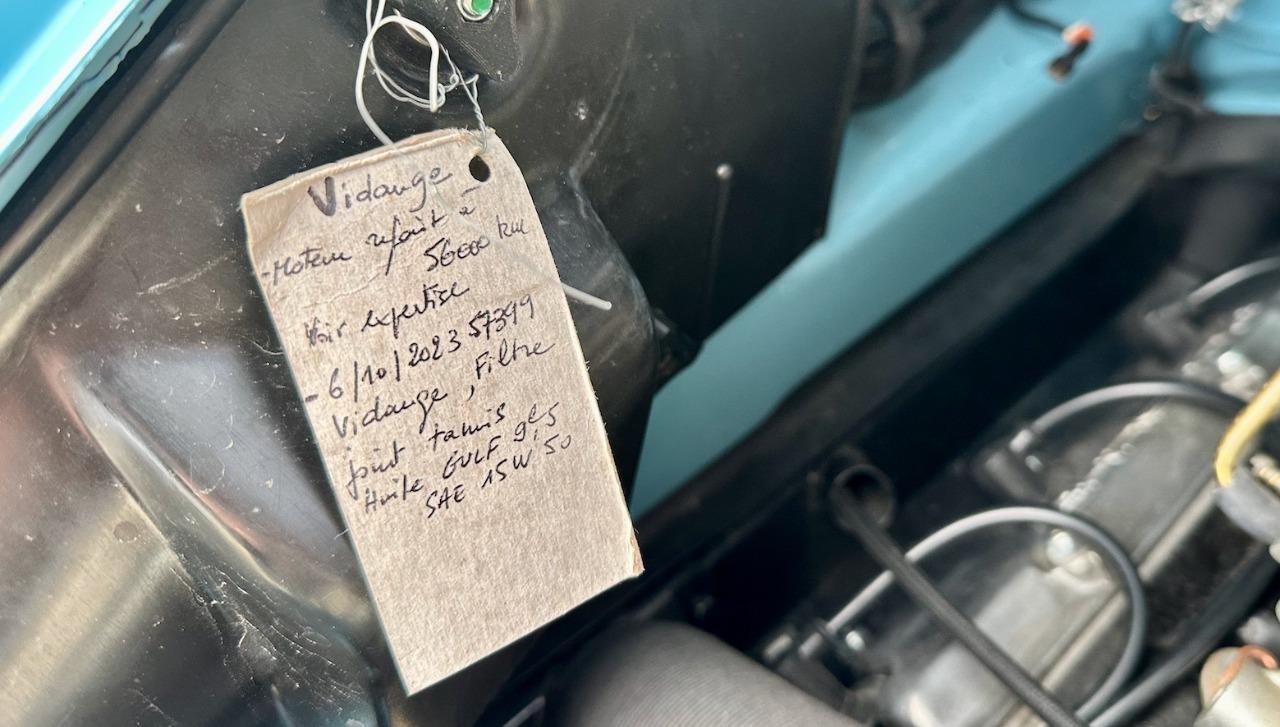 Vidange
- Moteur refait à
56000 km
Voir expertise
- 6/10/2023 57399
Vidange, Filtre
joint tamis
Huile GULF
SAE 15W50